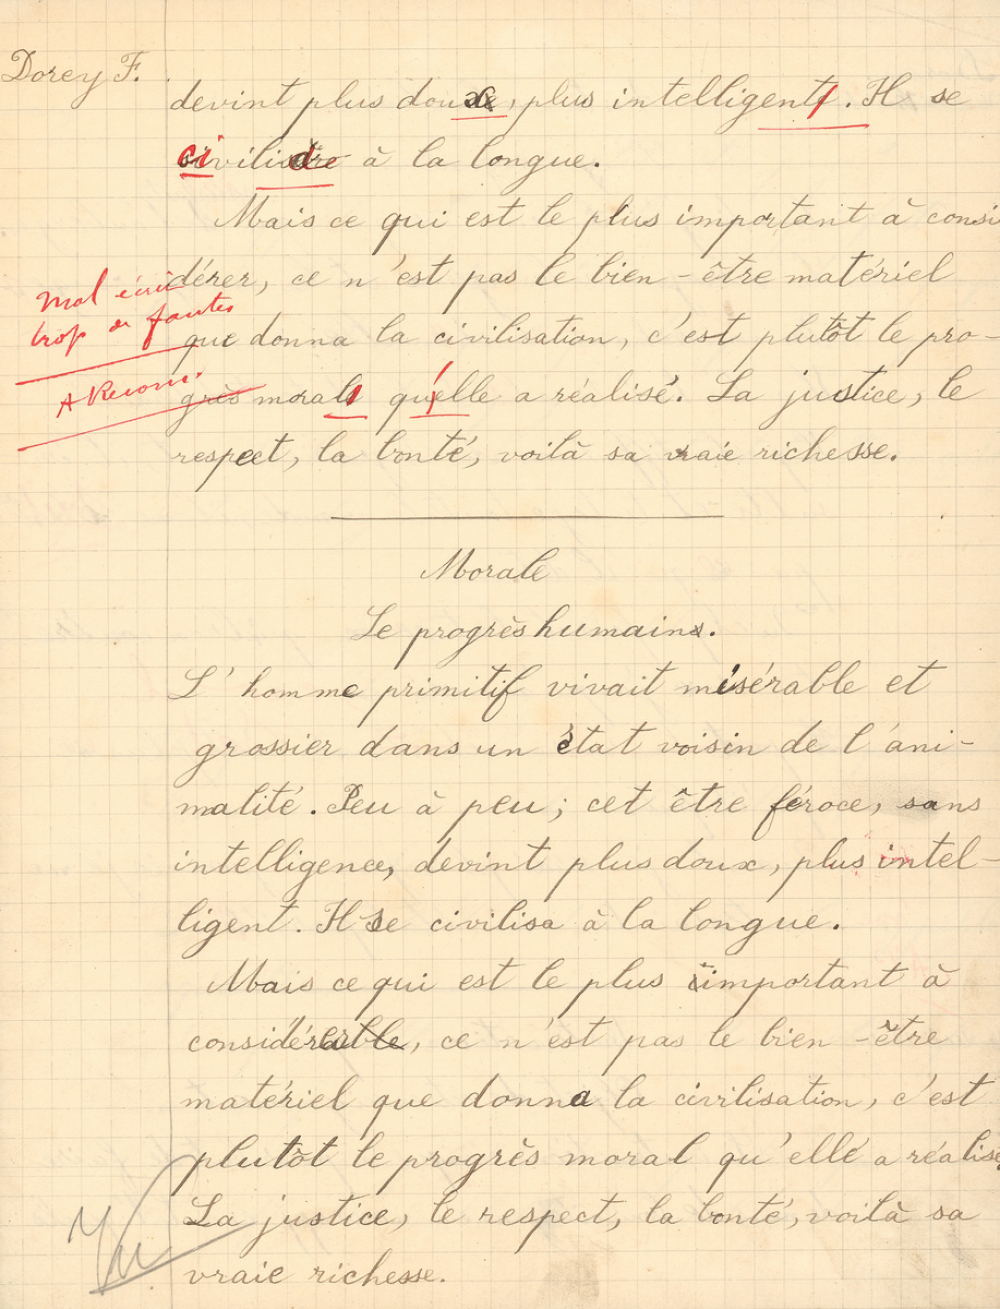 Dorey F.
devint plus doux, plus intelligent. Il se
civilisa à la longue.
Mais ce qui est le plus important à consi
dérer, ce n'est pas le bien-être matériel
Mal écrit
trop de fautes
que donna la civilisation, c'est plutôt le pro-
A Recom.
grès moral qu'elle a réalisé. La justice, le
respect, la bonté, voilà sa vraie richesse.
Morale
Le progrès humain.
L'homme primitif vivait misérable et
grossier dans un état voisin de l'ani-
malité. Peu à peu; cet être féroce, sans
intelligence, devint plus doux, plus intel-
ligent. Il se civilisa à la longue.
Mais ce qui est le plus important à
considérer, ce n'est pas le bien-être
matériel que donna la civilisation, c'est
plutôt le progrès moral qu'elle a réalisé
La justice, le respect, la bonté, voilà sa
vraie richesse.
Vu